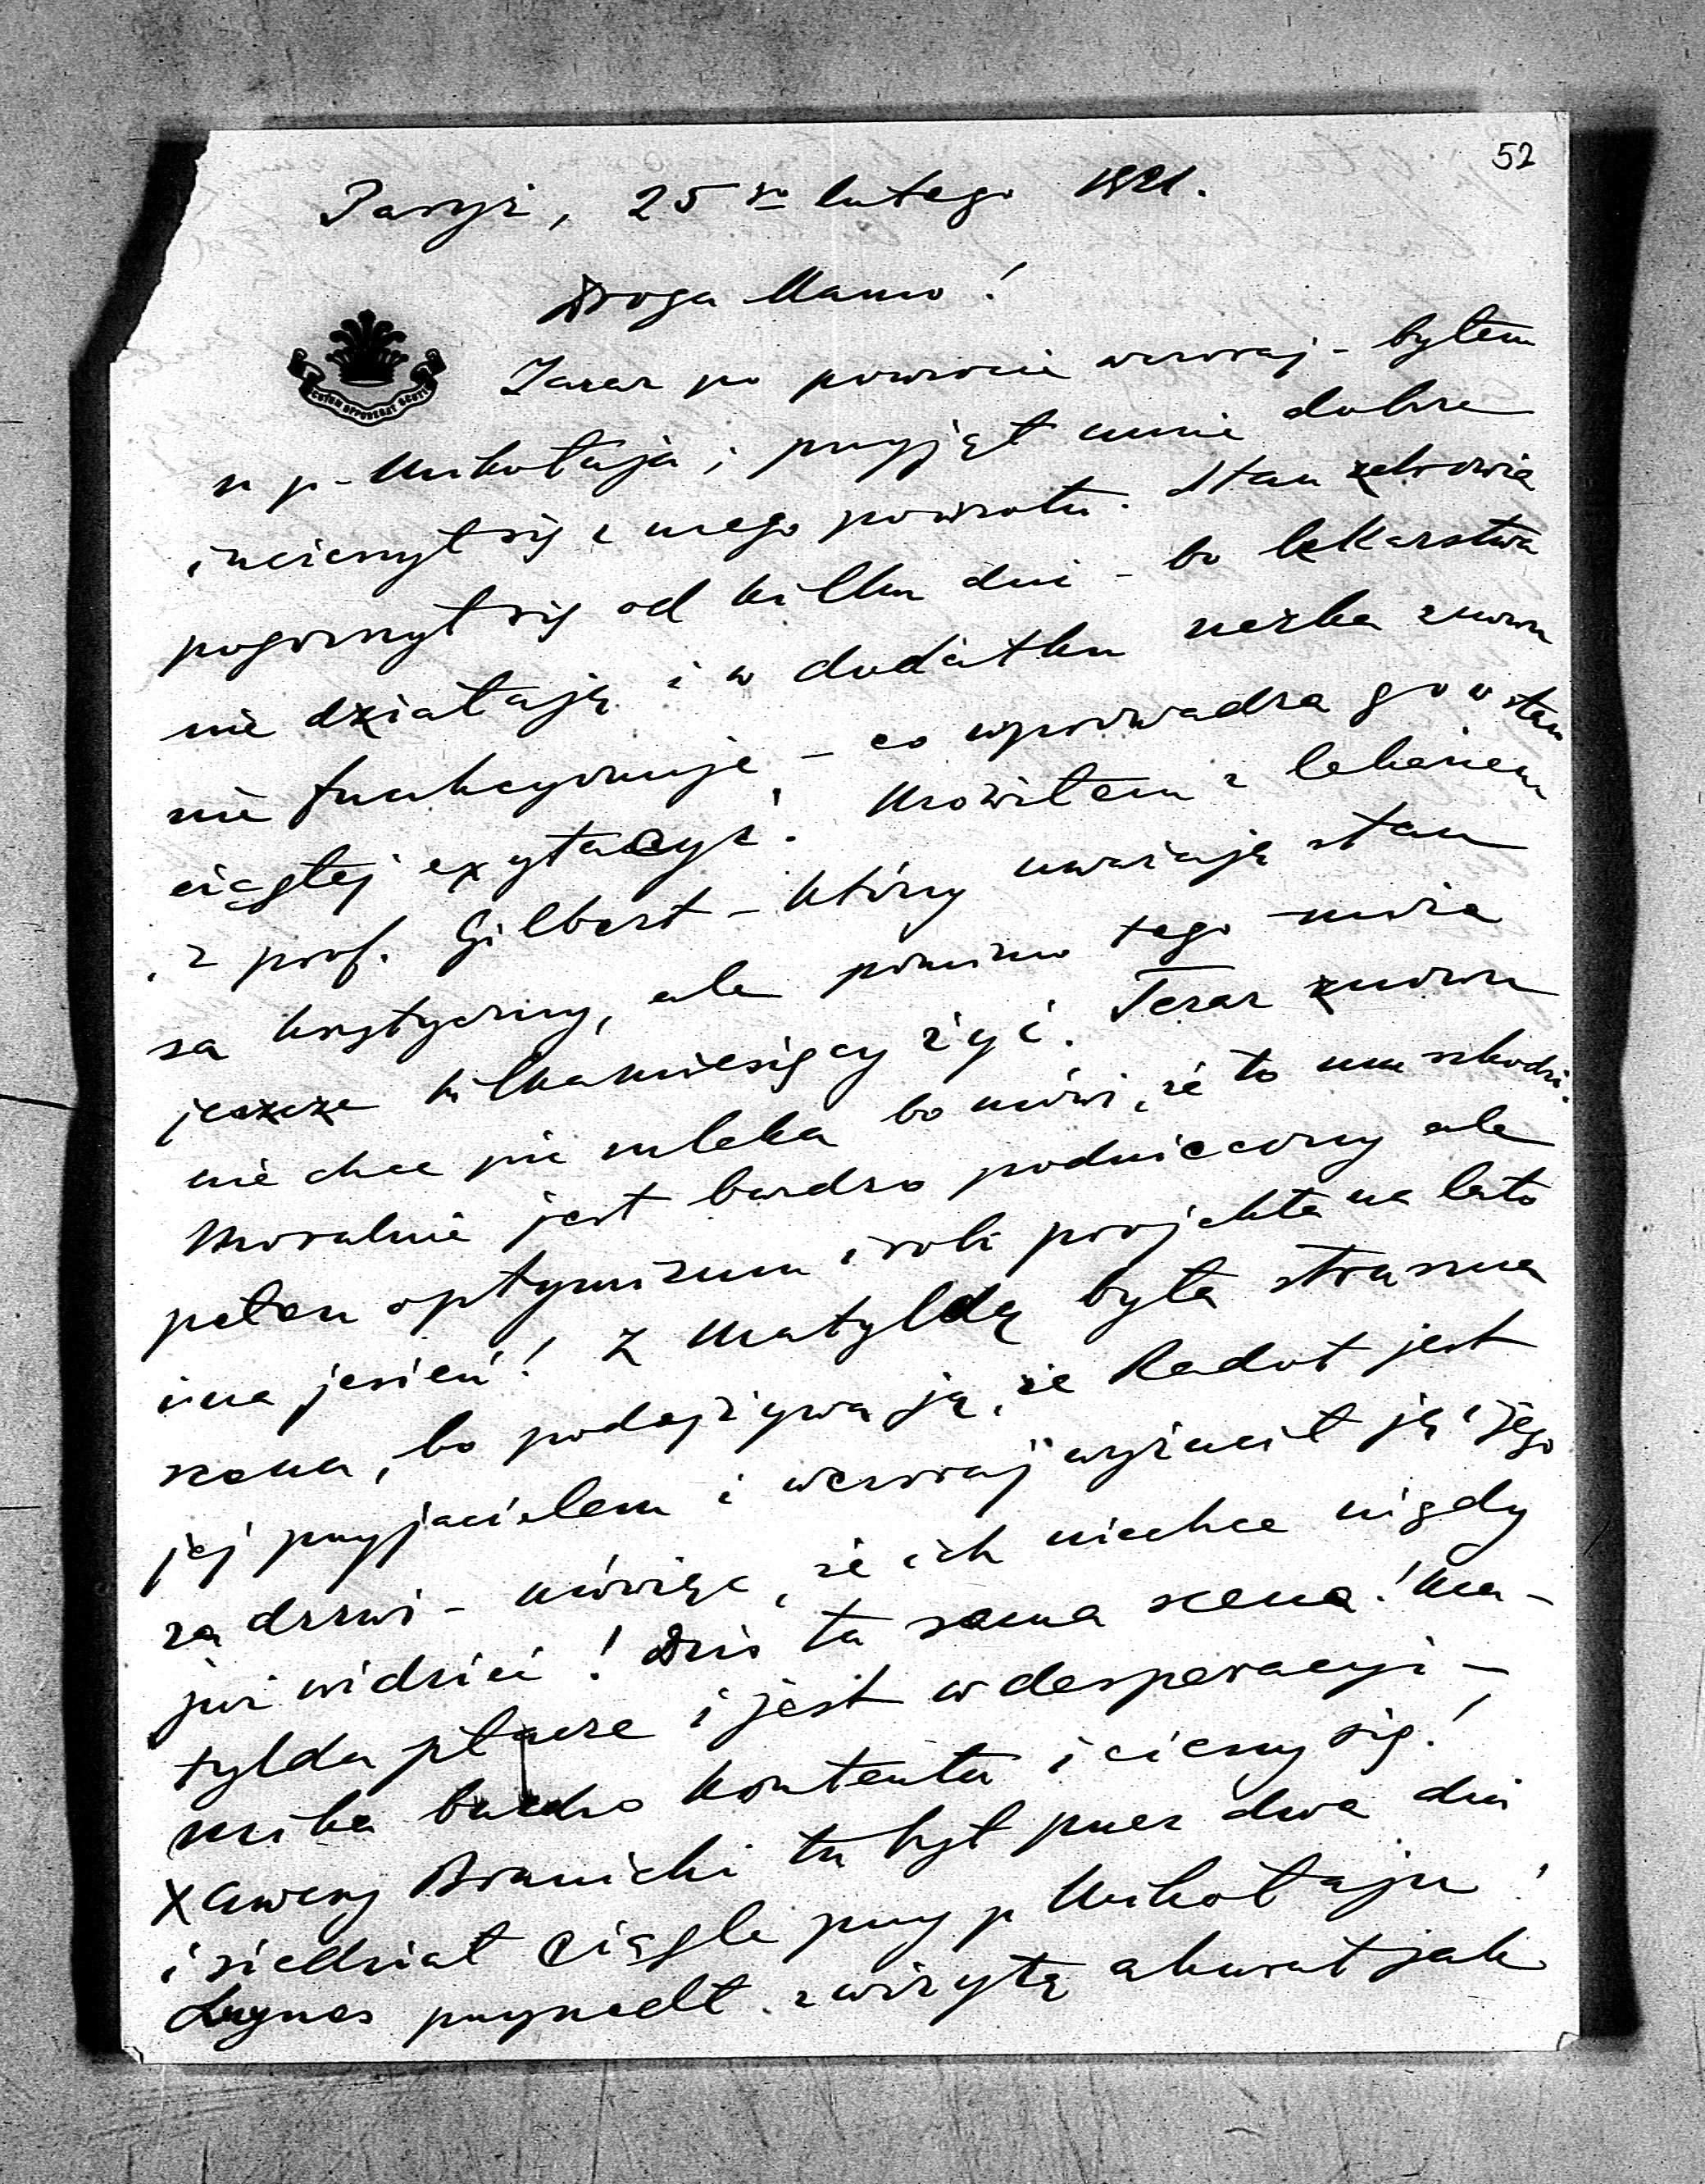 52
Paryż, 25 go lutego 1921.
Droga Mamo!
SCUTUM OPPONEBAT SCUTIS
Zaraz po powrocie wczoraj - byłem
u p. Mikołaja i przyjął mnie dobrze
i ucieszył się z mego powrotu. Stan zdrowia
pogorszył się od kilku dni - bo lekarstwa
nie działają i w dodatku nerka znowu
nie funkcyonuje - co wprowadza go w stan
ciągłej exytacyi. Mówiłem z lekarzem
i z prof. Gilbert - którzy uważają stan
za krytyczny, ale pomimo tego może
jeszcze kilka miesięcy żyć. Teraz znowu
nie chce pić mleka bo mówi, że to mu szkodzi.
Moralnie jest bardzo podniecony ale
pełen optymizmu i robi projekta na lato
i na jesień! Z Matyldą była straszna
scena, bo podejrzywa ją, że Radot jest
jej przyjacielem i wczoraj wyrzucił ją i jego
za drzwi - mówiąc, że ich niechce nigdy
już widzieć! Dziś ta sama scena! Ma-
tylda płacze i jest w desperacyi -
Mika bardzo kontenta i cieszy się!
Xawery Branicki tu był przez dwa dni
i siedział ciągle przy p Mikołaju!
Luynes przyszedł z wizytą akurat jak